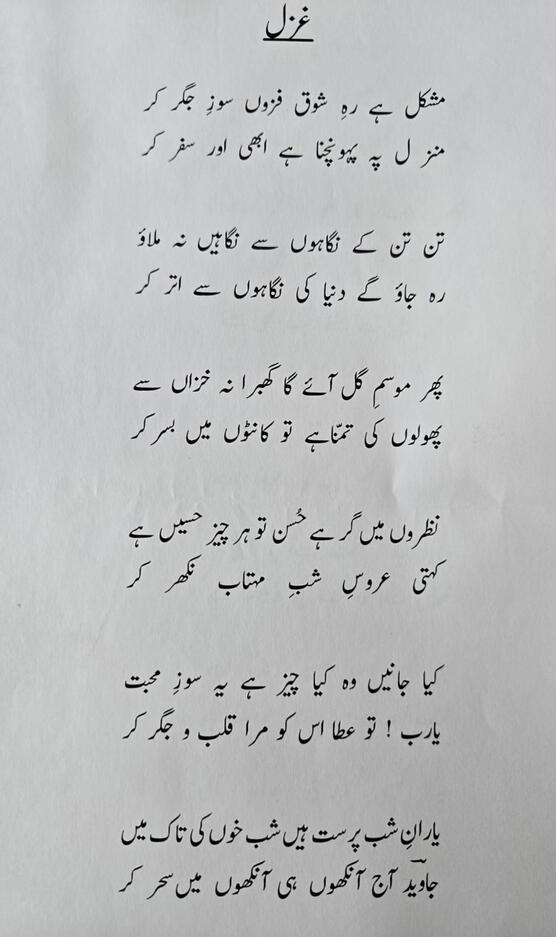 غزل
مشکل ہے رہِ شوق فزوں سوزِ جگر کر
منزل پہ پہونچنا ہے ابھی اور سفر کر
تن تن کے نگاہوں سے نگاہیں نہ ملاؤ
رہ جاؤ گے دنیا کی نگاہوں سے اتر کر
پھر موسمِ گل آئے گا گھبرا نہ خزاں سے
پھولوں کی تمنّا ہے تو کانٹوں میں بسر کر
نظروں میں گر ہے حُسن تو ہر چیز حسیں ہے
کہتی عروسِ شبِ مہتاب نکھر کر
کیا جانیں وہ کیا چیز ہے یہ سوزِ محبت
یارب ! تو عطا اس کو مرا قلب و جگر کر
یارانِ شب پرست ہیں شب خوں کی تاک میں
جاویدؔ آج آنکھوں ہی آنکھوں میں سحر کر